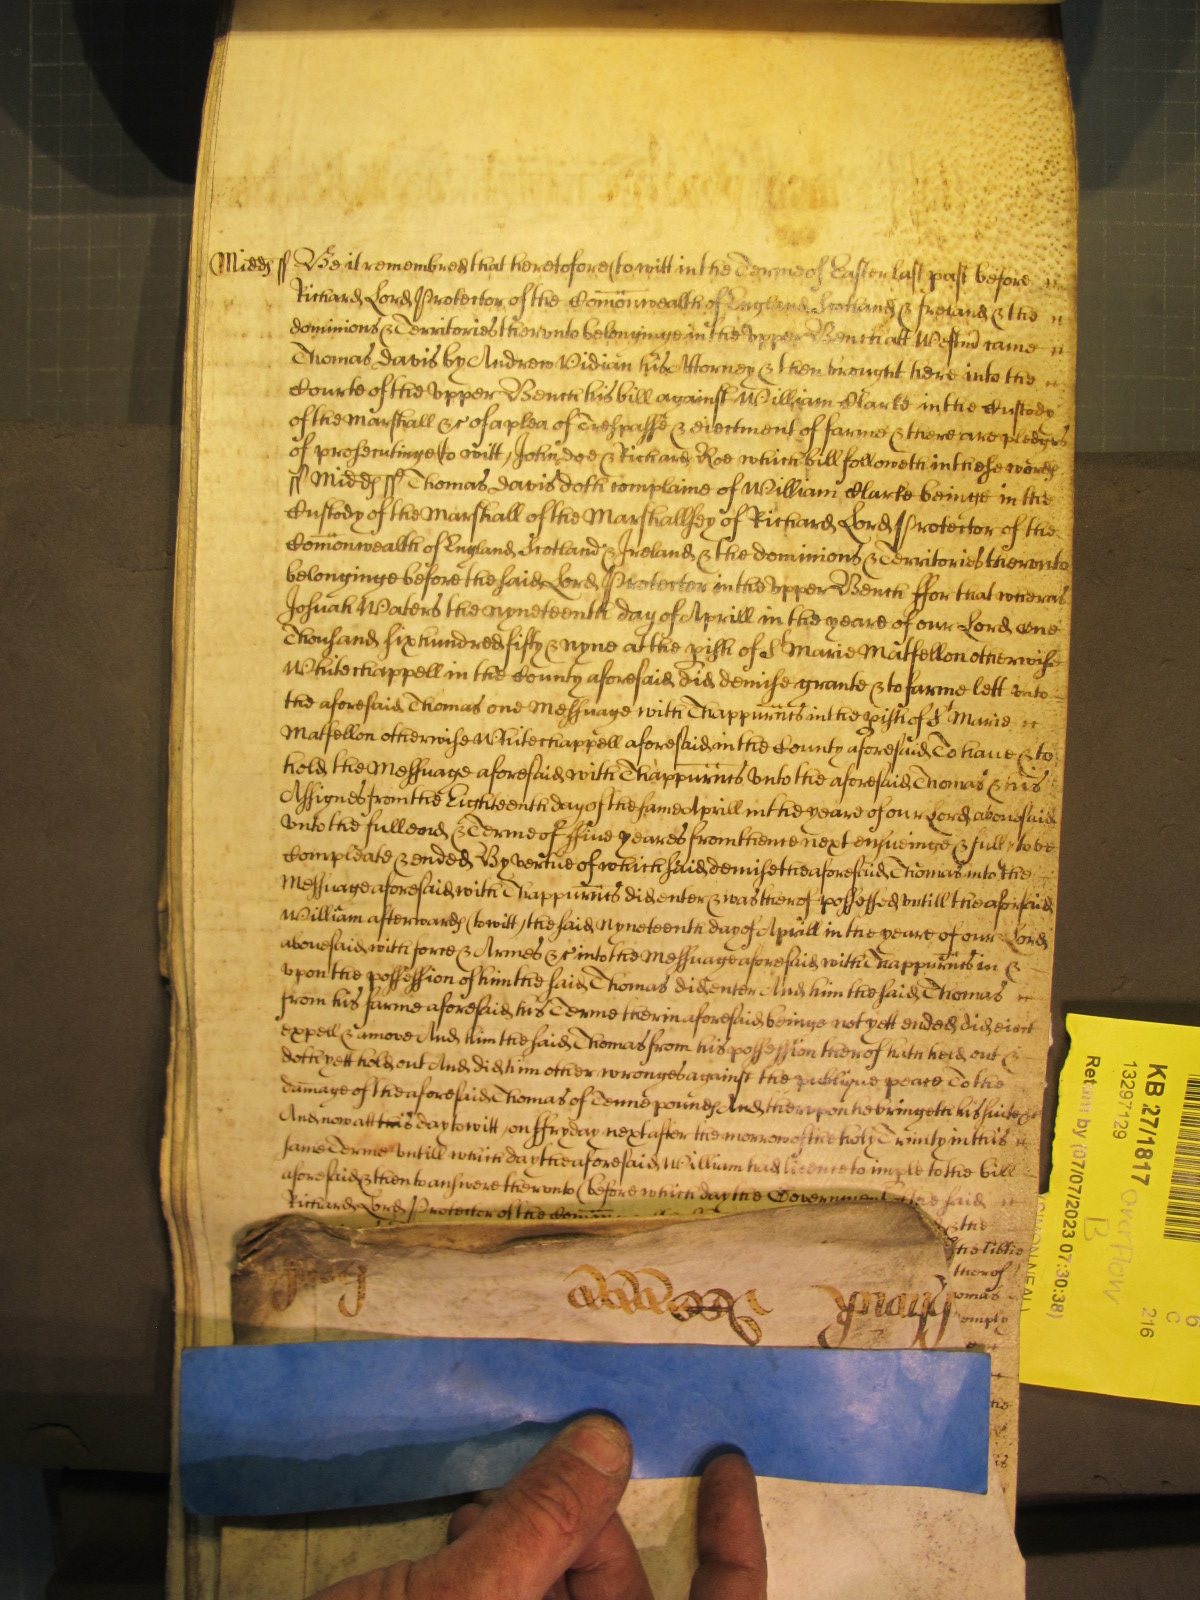 Midds ss Be it remembred that heretofore (to witt in the Terme of Easter last past before
Richard Lord Protector of the Comonwealth of England Scotland & Ireland & the
dominions & Territories therunto belonginge in the upper Bench att Westm came
Thomas davis by Andrew Vidian his Attorney & then brought here into the
Courte of the upper Bench his bill against William Clarke in the Custody
of the Marshall &c of a plea of Trespasse & eiectment of farme & there are pledges
of prosecutinge (to witt) John doe & Richard Roe which bill followeth in these words
ss Midds ss Thomas davis doth complaine of William Clarke beinge in the
Custody of the Marshall of the Marshallsey of Richard Lord Protector of the
Comonwealth of England Scotland & Ireland & the dominions & Territories therunto
belonginge before the said Lord Protector in the upper Bench ffor that wheras
Josuah Waters the nyneteenth day of Aprill in the yeare of our Lord one
Thousand six hundred fifty & nyne at the pish of St Marie Matfellon otherwise
Whitechappell in the County aforesaid did demise grante & to farme lett unto
the aforesaid Thomas one Messuage with Thappurtn̄ts in the pish of St Marie
Matfellon otherwise Whitechappell aforesaid in the County aforesaid To have & to
hold the Messuage aforesaid with Thappurtn̄ts unto the aforesaid Thomas & his
Assignes from the Eighteenth day of the same Aprill in the yeare of our Lord abovesaid
unto the full end & Terme of ffive yeares from thence next ensueinge & fully to be
Compleate & ended By vertue of which said demise the aforesaid Thomas into the
Messuage aforesaid with Thappurtn̄ts did enter & was therof possessed untill the aforesaid
William afterwards (to witt) the said Nyneteenth day of Aprill in the yeare of our Lord
abovesaid with force & Armes &c into the Messuage aforesaid with Thappurtn̄ts in &
upon the possession of him the said Thomas did enter And him the said Thomas
from his farme aforesaid his Terme therin aforesaid beinge not yett ended did eiect
expell & amove And him the said Thomas from his possession therof hath held out &
doth yett hold out And did him other wronges against the publique peace To the
damage of the aforesaid Thomas of Tenne pounds And therupon he bringeth his suite &c
And now att this day to witt on ffryday next after the morrow of the holy Trinity in this
same Terme untill which day the aforesaid William had licence to imple to the bill
aforesaid & then to answere therunto (before which day the Government of the said
Richard Lord Protector of the
& the
the libtie
therof
omas
emply
KB 27/1817
13297129
Return by (07/07/2023 07:30:38)
Overflow
B
C
216